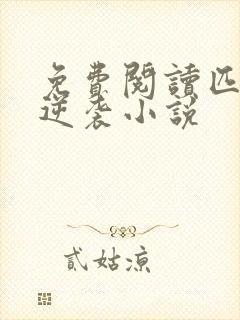 免費閱讀匹
逆袭小説
貳姑凉